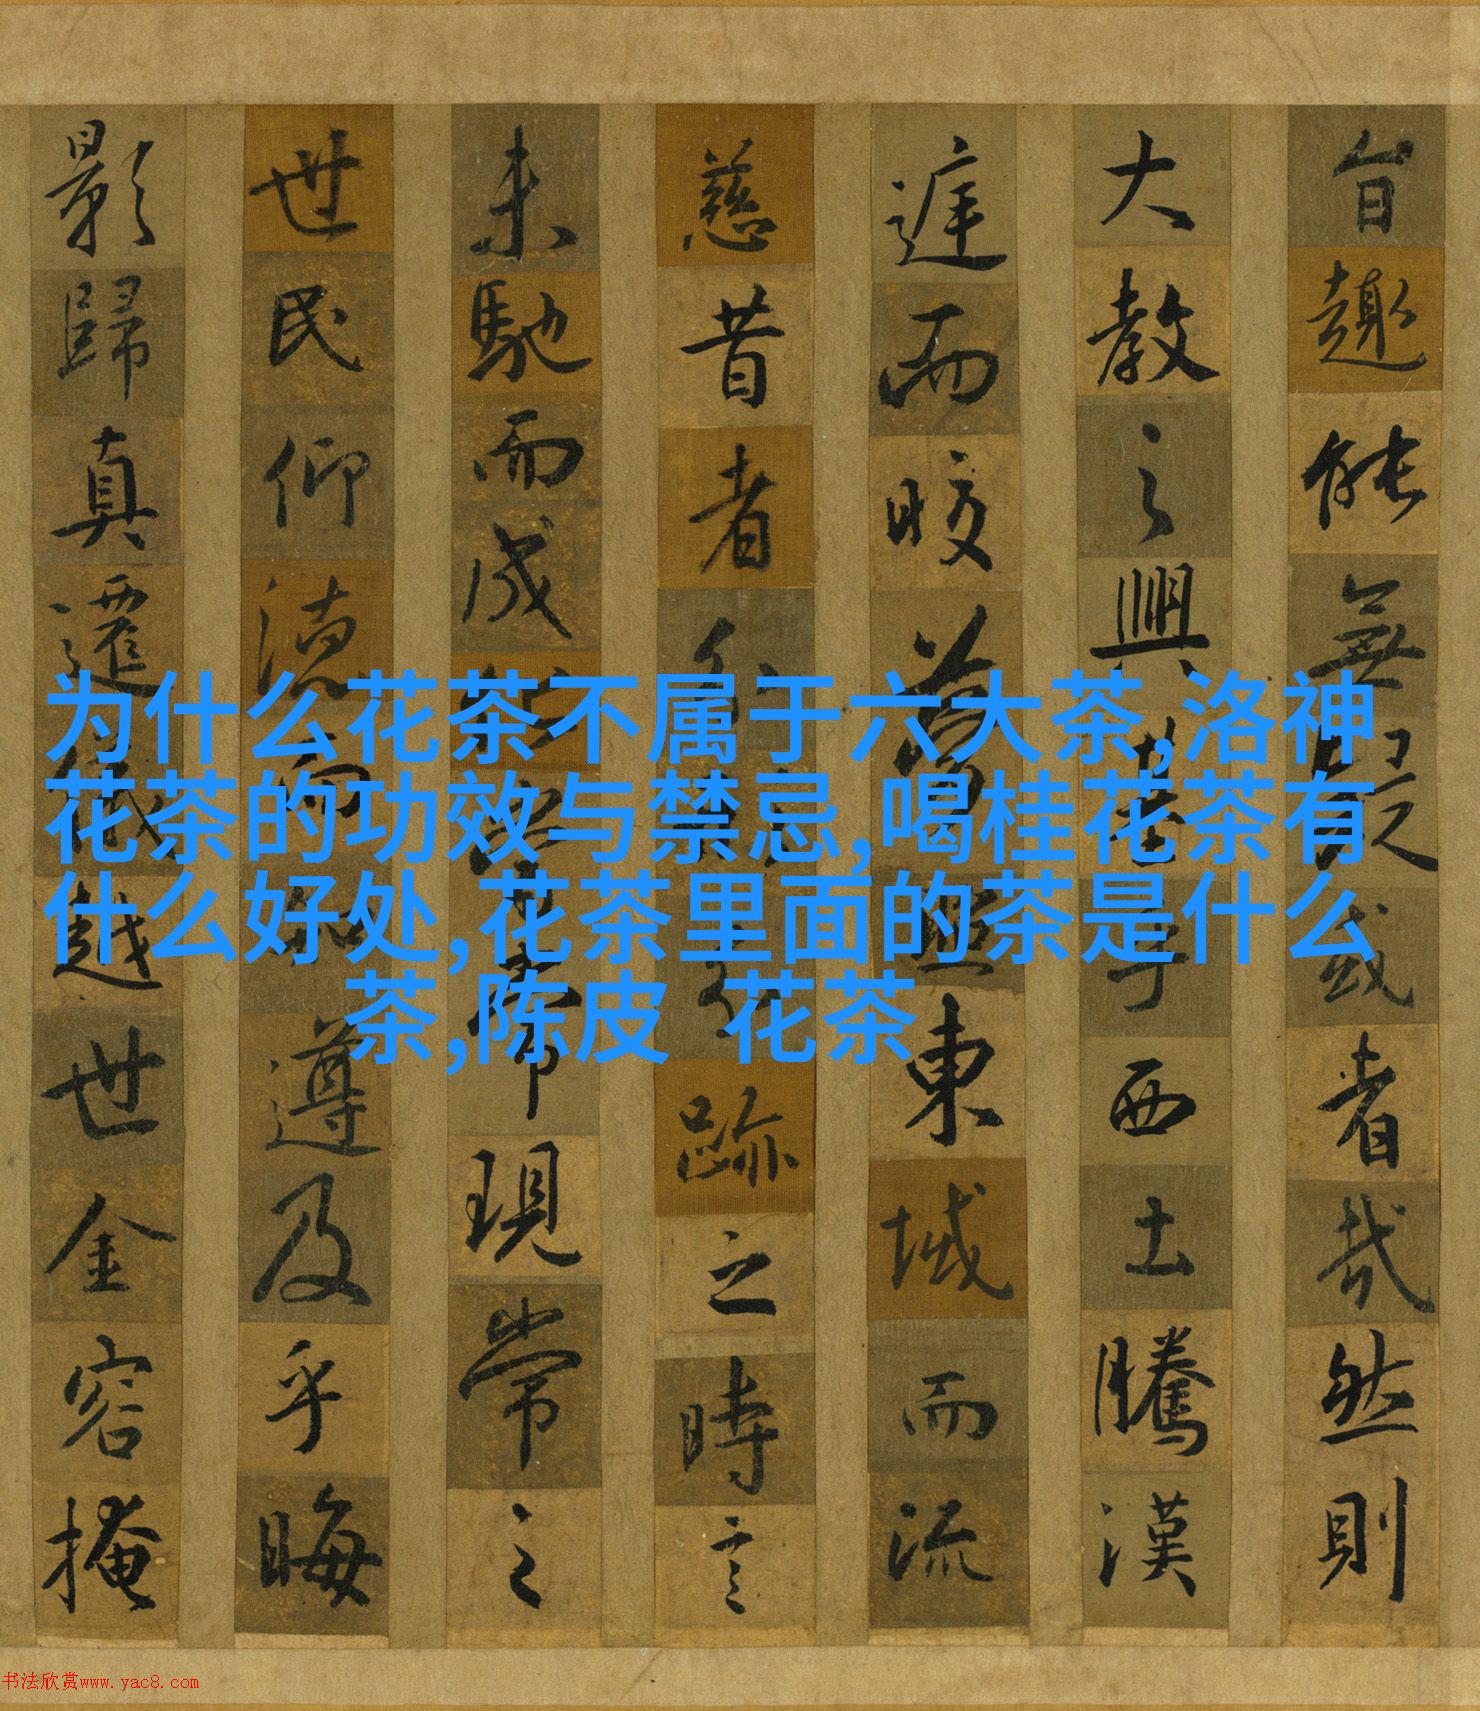 旨趣能無疑或者哉然則
大教之興基乎西土騰漢
庭而皎夢照東域而流
慈昔者分形分跡之時言
未馳而成化當常現常之
世民仰德而知遵及乎晦
影歸真遷儀越世金容掩
为什么花茶不属于六大茶,洛神
花茶的功效与禁忌,喝桂花茶有
什么好处,花茶里面的茶是什么
茶,陈皮 花茶
书法欣赏www.yac8.com